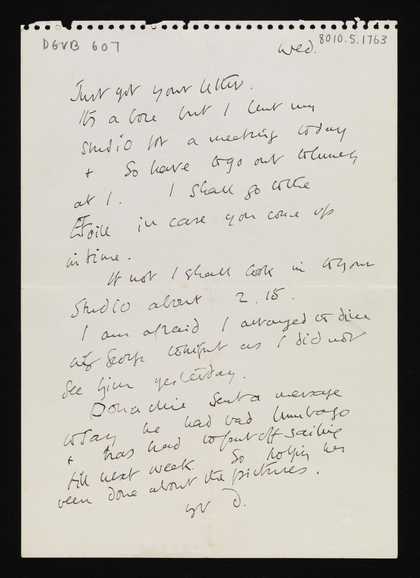 DGVB 607
8010.5.1763
Wed.
Just got your letter.
Its a bore but I lent my
studio for a meeting today
+ so have to go out to lunch
at 1. I shall go to the
Etoile in case you come up
in time.
If not I shall look in to your
studio about 2.15.
I am afraid I arranged to dine
with George tonight as I did not
see him yesterday.
Donachie sent a message
to say he had bad lumbago
+ has had to put off sailing
till next week. So nothing has
been done about the pictures.
yr D.